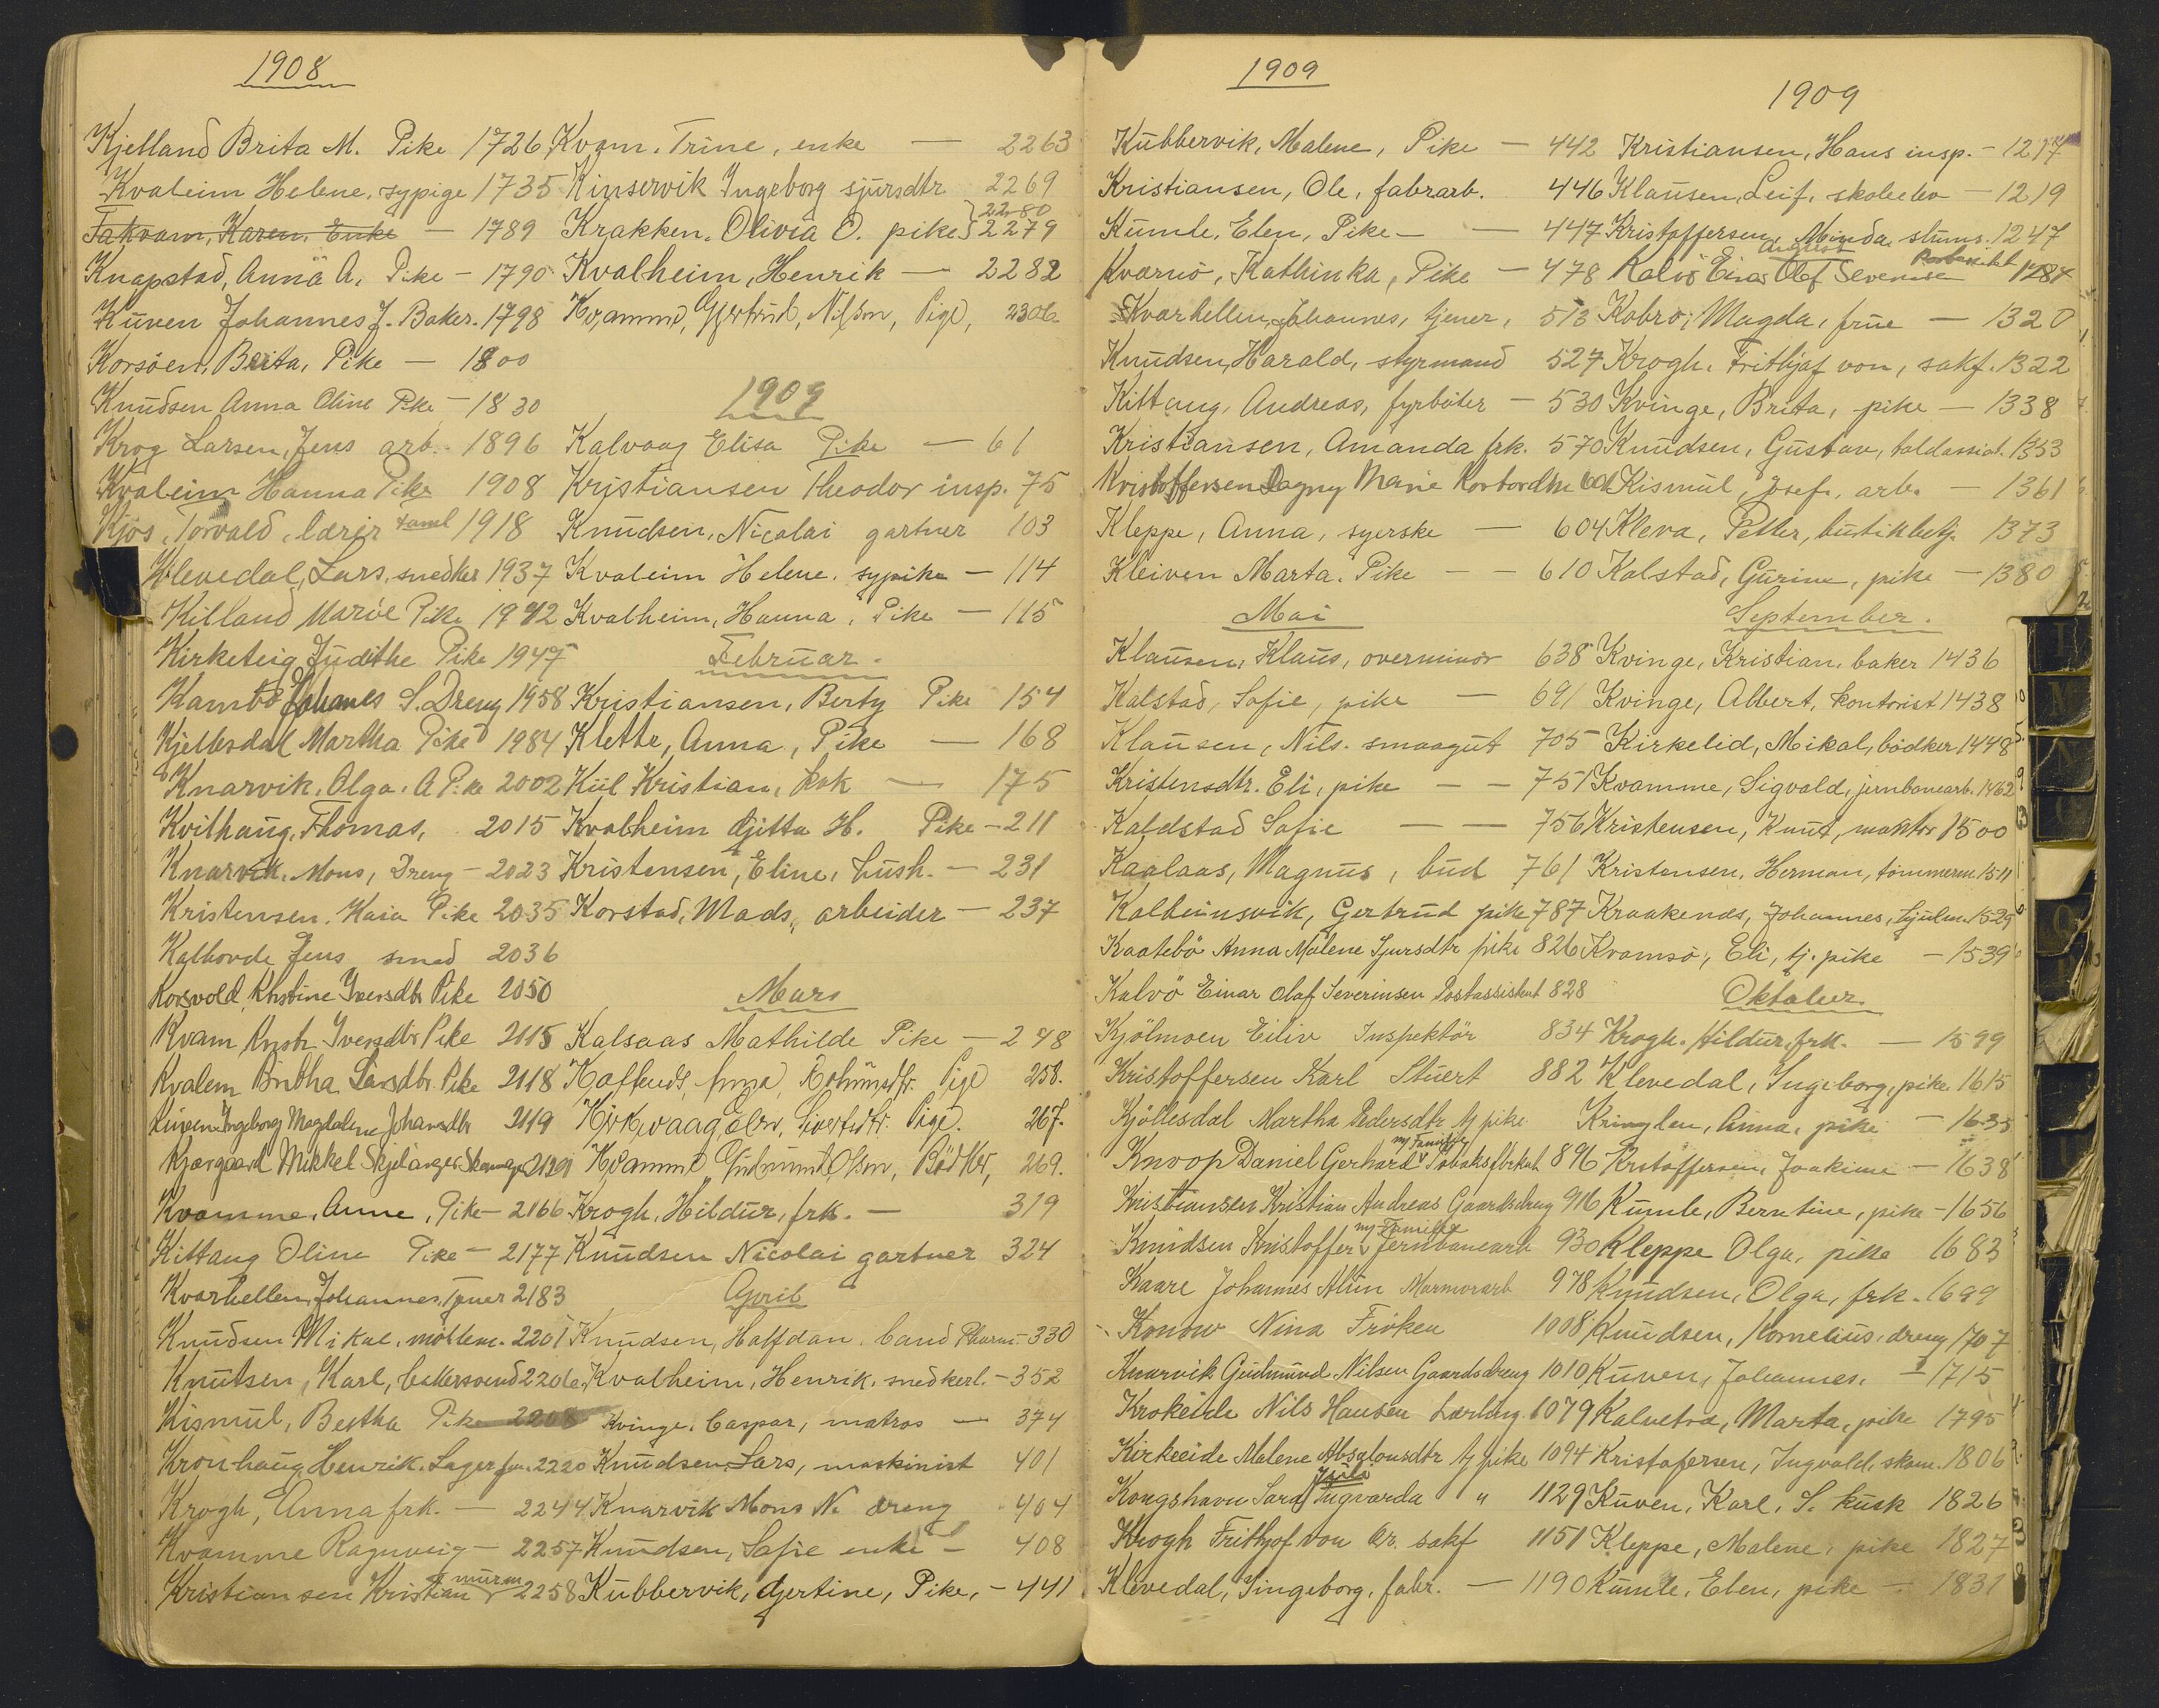 1908
Kjelland Brita M. Pike 1726
Kvaleim Helene, sypige 1735
Takvam, Karen, Enke — 1789
Knapstad, Anna A. Pike — 1790
Kuven Johannes J. Baker. 1798
Korsöen, Brita, Pike — 1800
Knudsen Anna Oline Pike — 1830
Krog Larsen, Jens arb. - 1896
Kvaleim Hanna Pike 1908
Kjos, Torvald, lærer faml 1918
Klevedal, Lars, snedker 1937
Killand Marie Pike 1942
Kirketeig Judithe Pike 1947
Kambo Johanes S. Dreng 1958
Kjellesdal Martha Pike 1984
Knarvik, Olga. A Pike 2002
Kvithaug, Thomas, 2015
Knarvik, Mons, Dreng — 2023
Kristensen, Kaia Pike 2035
Kalhovde Jens smed 2036
Korsvold, Kristine Iversdtr Pike 2050
Kvam Iversdtr Pike 2115
Kvalem Larsdtr. Pike 2118
Ingeborg Magdalene Johansdtr 2119
Kjærgaard Mikkel
Kvamme, Anne, Pike — 2166
Kittang Oline Pike — 2177
Kvarhellen, Johannes, Tjener 2183
Knudsen Mikal, 2201
Knutsen, Karl, bakersvend 2206.
Kismul, Bertha Pike 2208
Kronhaug Henrik. Lagerfm. 2220
Krogh, Anna frk. — 2244
Kvamme Ragnveig — 2257
Kristiansen Kristian murm 2258
Kvam, Trine, enke — 2263
Kinservik Ingeborg sjursdtr 2269
2280
Krakken, Olivia O. pike 2279
Kvalheim, Henrik — 2282
Kvamme, Gjertrud, Nilsen, Pige, 2306
1909
Kalvaag Elisa Pike — 61
Kristiansen Theodor insp. 75
Knudsen, Nicolai gartner 103
Kvaleim Helene. sypike — 114
Kvalheim, Hanna, Pike — 115
Februar.
Kristiansen, Berty Pike 154
Klette, Anna, Pike — 168
Kiil Kristian, kok — 175
Kvalheim Gjitta H. Pike — 211
Kristensen, Eline, hush. — 231
Korstad, Mads, arbeider — 237
Mars
Kalsaas Mathilde Pike — 248
Pige 258.
Pige. 267.
Kvamme, Gudmund Olsen, Bödker, 269.
Krogh, Hildur, frk. — 319
Knudsen Nicolai gartner 324
April
Knudsen, Halfdan, Cand Pharm. — 330
Kvalheim, Henrik, snedkerl. — 352
Kvinge, Caspar, matros — 374
Knudsen, Lars, maskinist 401
Knarvik Mons N. dreng 404
Knudsen, Sofie enke — 408
Kubbervik, Gjertine, Pike, — 441
1909
Kubbervik, Malene, Pike — 442
Kristiansen, Ole, fabrarb. 446
Kumle, Elen, Pike — — 447
Kværnö, Kathinka, Pike — 478
Kvarhellen, Johannes, tjener, 513
Knudsen, Harald, styrmand 527
Kittang, Andreas, fyrböter — 530
Kristiansen, Amanda frk. 570
Kristoffersen Dagny Marie Kontordm 601
Kleppe, Anna, syerske — 604
Kleiven Marta, Pike — — 610
Mai
Klausen, Klaus, overminör 638
Kalstad, Sofie, pike — 691
Klausen, Nils. smaagut 705
Kristensdtr. Eli, pike — — 751
Kaldstad Sofie — — 756
Kaalaas, Magnus, bud 761
Kalbeinsvik, Gertrud pike 787
Kaatebö Anna Malene Sjursdtr pike 826
Kalvö Einar Olaf Severinsen Postassistent 828
Kjölmoen Eiliv Inspektör 834
Kristoffersen Karl Stuert 882
Kjöllesdal Martha Pedersdtr tj pike
Knoop Daniel Gerhard m Familie Tobaksfbrkat 896
Kristiansen Kristian Andreas Gaardsdreng 916
Knudsen Kristoffer m Familie Jernbanearb 930
Kaare Johannes Alun Marmorarb 978
Konow Nina Fröken 1008
Knarvik Gudmund Nilsen Gaardsdreng 1010
Krokeide Nils Hansen Lærling. 1079
Kirkeeide Malene Absalonsdtr tj pike 1094
Kongshavn Sara Julie Ingvarda " 1129
Krogh Frithjof von Or. sakf 1151
Klevedal, Ingeborg, fabr. — 1190
1909
Kristiansen, Hans insp. — 1217
Klausen, Leif, skoleelev — 1219
Kristoffersen, Minda stums. 1247
Kalvö Einar August Olaf Severinsen Postassistent 1284
Kobro, Magda, frue — 1320
Krogh, Frithjof von, sakf. 1322
Kvinge, Brita, pike — 1338
Knudsen, Gustav, toldassist. 1353
Kismul, Josef, arb. — 1361
Kleva, Petter, butikbetj. 1373
Kalstad, Gurine, pike — 1380
September.
Kvinge, Kristian, baker 1436
Kvinge, Albert, kontorist 1438
Kirkelid, Mikal, bödker 1448
Kvamme, Sigvald, jernbanearb. 1462
Kristensen, Knut, maktor 1500
Kristensen, Herman, tömmerm. 1511
Kraakenes, Johannes, 1529
Kvamsö, Eli, tj. pike — 1539
Oktober.
Krogh, Hildur, frk. — 1599
Klevedal, Ingeborg, pike 1615
Kringlen, Anna, pike — 1635
Kristoffersen, Joakime — 1638
Kumle, Berntine, pike — 1656
Kleppe Olga, pike 1683
Knudsen, Olga, frk. 1699
Knudsen, Kornelius, dreng 1707
Kuven, Johannes, — 1715
Kalvetræ, Marta, pike 1795
Kristofersen, Ingvald, skom. 1806
Kuven, Karl, S. kusk 1826
Kleppe, Malene, pike 1827
Kumle, Elen, pike — 1831